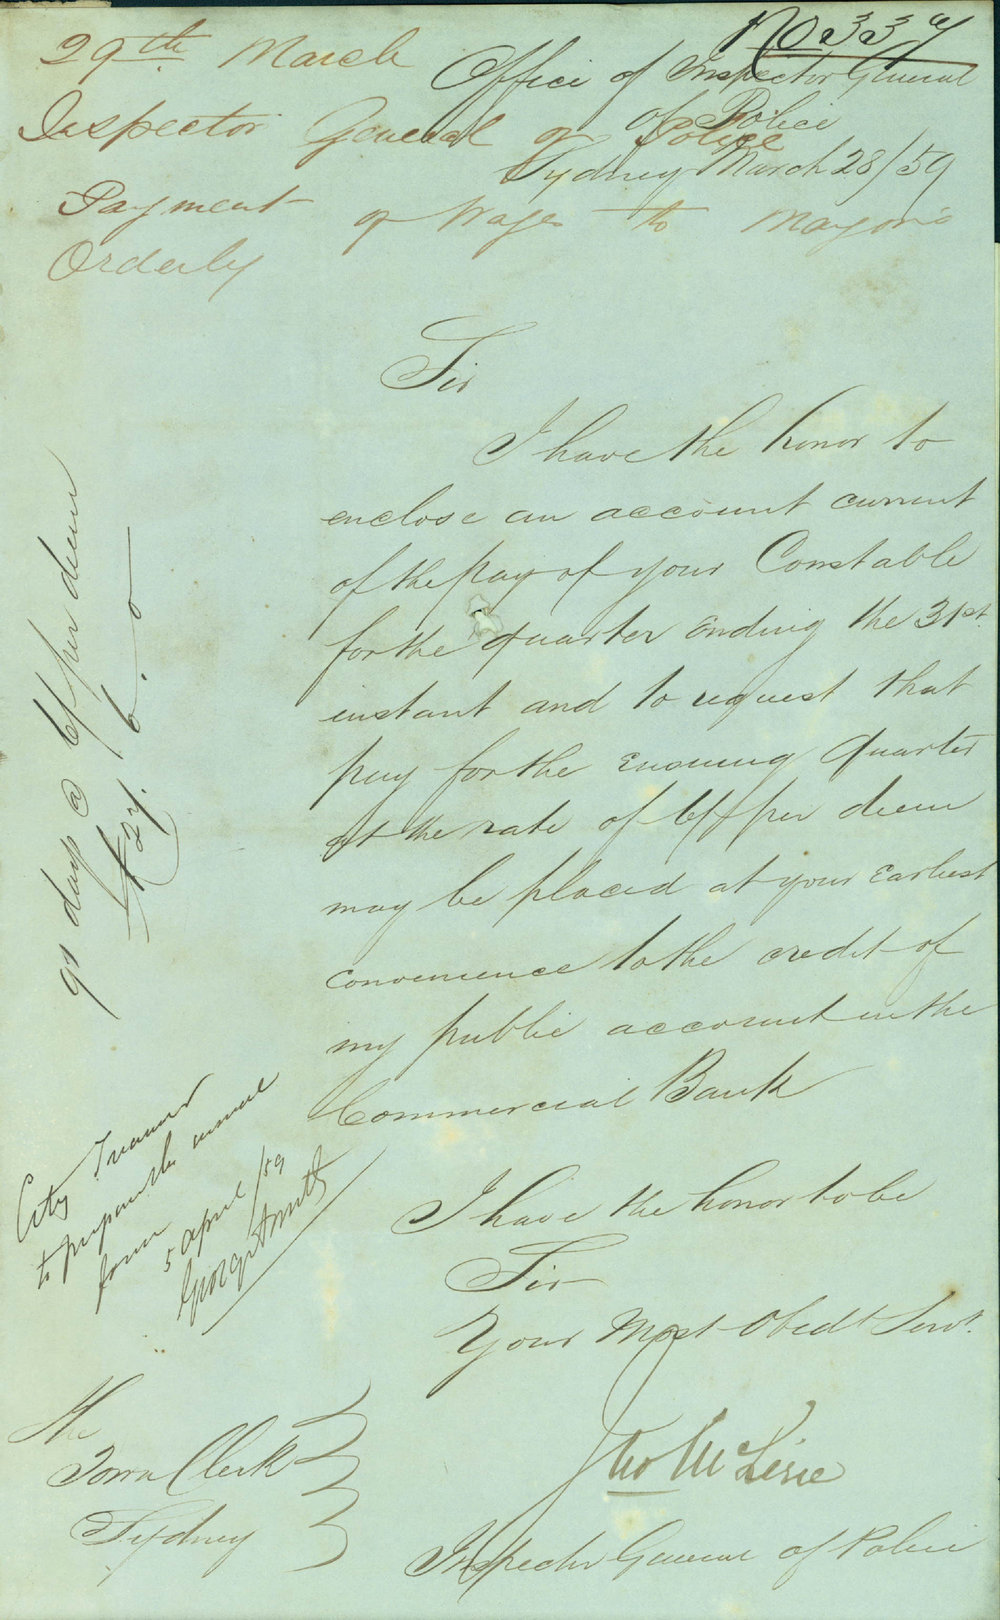 No 337
29th March
Inspector General of Police
Payment of Wages to Mayor's
Orderly
Office of Inspector General
of Police
Sydney March 28/59
Sir
I have the honor to
enclose an account current
of the pay of your Constable
for the quarter ending the 31st
instant and to request that
pay for the ensuing Quarter
at the rate of 6/ per diem
may be placed at your Earliest
convenience to the credit of
my public account in the
Commercial Bank
I have the honor to be
Sir
Your Most Obedt Servt.
Jno McLerie
Inspector General of Police
The
Town Clerk
Sydney
91 days @ 6/ per diem
£27. 6. 0
City Treasurer
to prepare the usual
form
5 April /59
George Smith